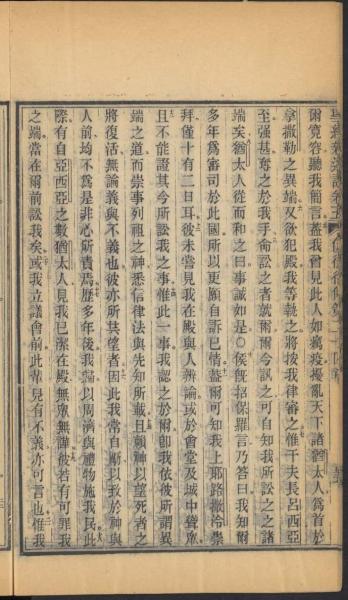 爾寬容聽我簡言蓋我曾見此人如瘟疫擾亂天下諸猶太人爲首於
拿撒勒之異端又欲犯殿我等執之將按我律審之惟千夫長呂西亞
至强甚奪之於我手命訟之者就爾爾今訊之可自知我所訟之之諸
端矣猶太人從而和之曰事誠如是○侯旣招保羅言乃答曰我知爾
多年爲審司於此國所以更願自訴已情蓋爾可知我上耶路撒冷崇
拜僅十有二日耳彼未嘗見我在殿與人辨論或於會堂及城中聳眾
且不能證其今所訟我之事惟此一事我認之於爾卽我依彼所謂異
端之道而崇事列祖之神悉信律法與先知所載且賴神以望死者之
將復活無論義與不義也彼亦所其望者因此我常自勵以致於神與
人前均不爲是非心所責焉歷多年後我詣以周濟與禮物施我民此
際有自亞西亞之數猶太人見我已潔在殿無眾無譁彼若有可罪我
之端當在爾前訟我矣或我立議會前此輩見有不義亦可言也惟我